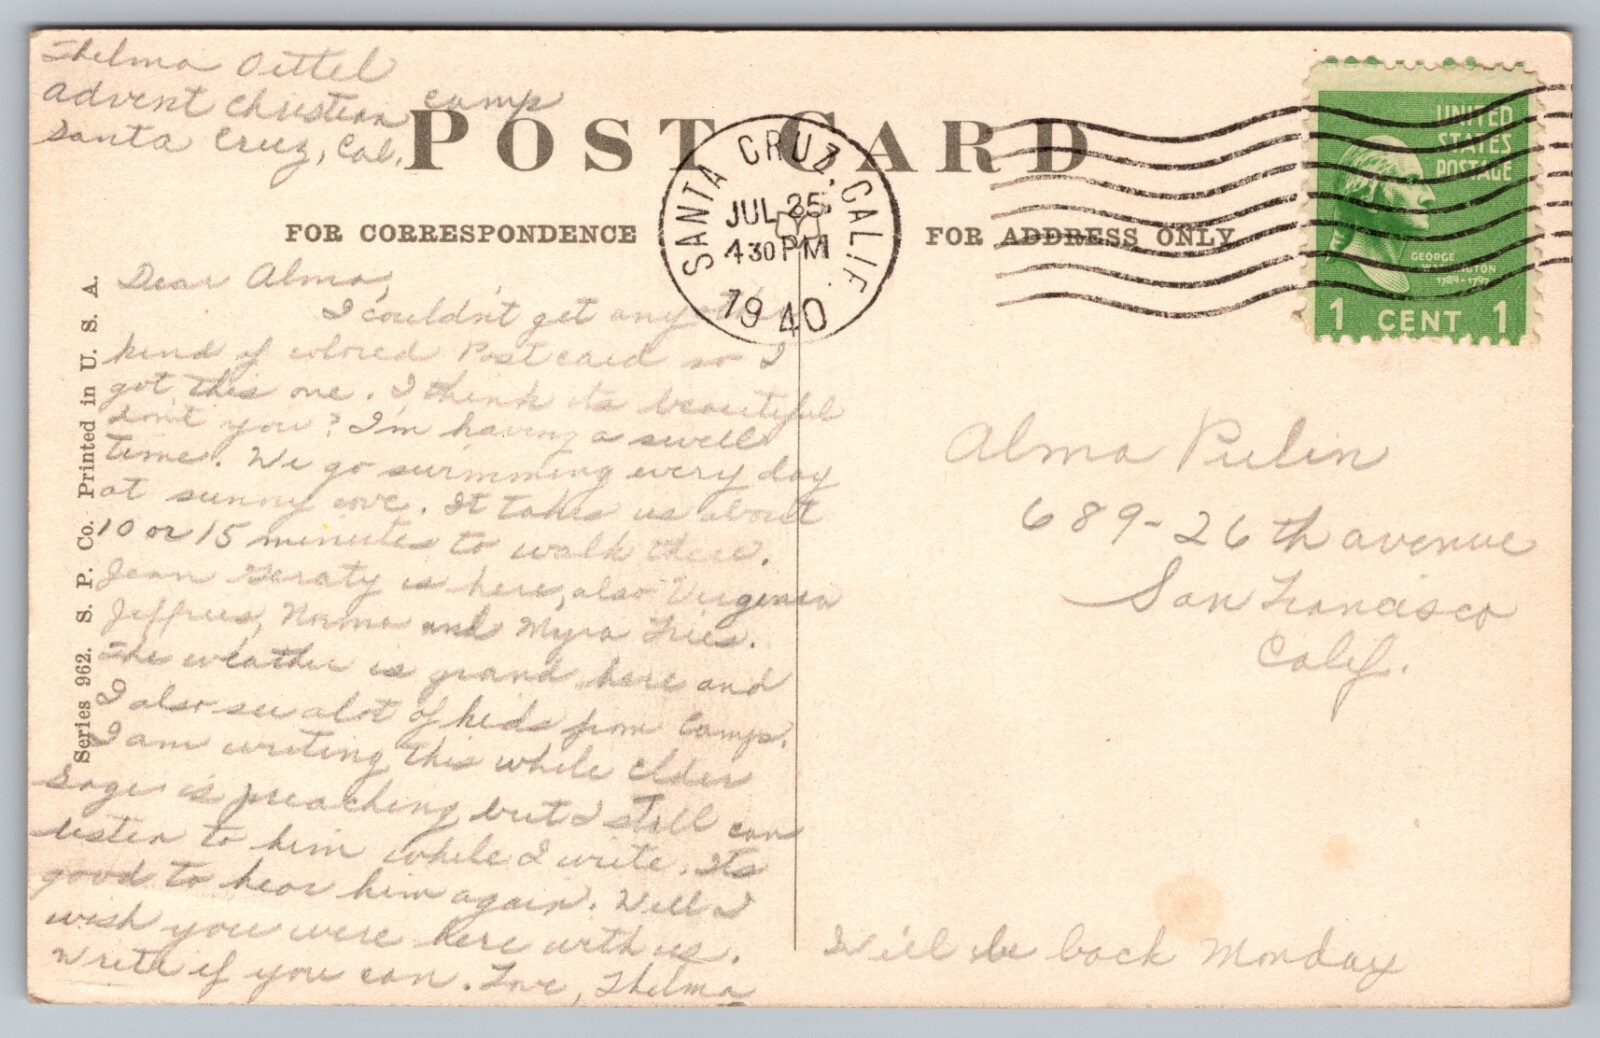 Thelma Oettel
Advent Christian Camp
Santa Cruz, Cal.
POST CARD
SANTA CRUZ, CALIF.
JUL 25
4 30 PM
1940
UNITED
STATES
POSTAGE
GEORGE
WASHINGTON
1789-1797
1 CENT 1
FOR CORRESPONDENCE
FOR ADDRESS ONLY
Series 962. S. P. Co. Printed in U. S. A.
Dear Alma,
I couldn't get any other
kind of colored Postcard so I
got this one. I think its beautiful
don't you? I'm having a swell
time. We go swimming every day
at sunny cove. It takes us about
10 or 15 minutes to walk there.
Jean Geraty is here, also Virginia
Jeffries, Norma and Myra Fries.
The weather is grand here and
I also see alot of kids from Camp.
I am writing this while Elder
Sage is preaching but I still can
listen to him while I write. Its
good to hear him again. Well I
wish you were here with us.
Write if you can. Love, Thelma
Alma Pulin
689-26th avenue
San Francisco
Calif.
Will be back Monday